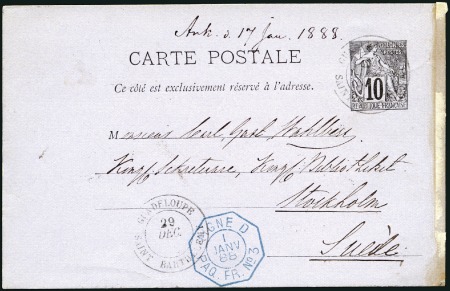 Ank. d. 17 Jan. 1888.
CARTE POSTALE
Ce côté est exclusivement réservé à l'adresse.
10
REPUBLIQUE FRANÇAISE
Monsieur Carl Gust.
Kongl. Sekreterare, Kongl. Bibliotheket
Stockholm
Suède.
GUADELOUPE
29
DEC.
SAINT BARTHELEMY
LIGNE D
1
JANV
88
PAQ. FR. Nº 3